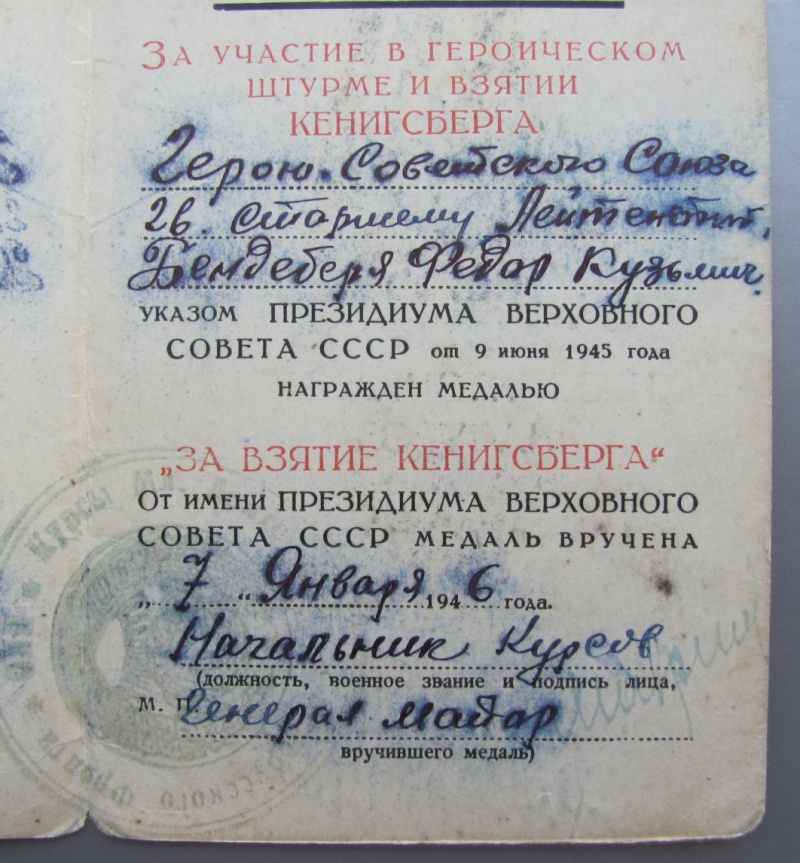 За участие в героическом
штурме и взятии
Кенигсберга
Герою Советского Союза
гв. старшему Лейтенант.
Бендеберя Федор Кузьмич
указом Президиума Верховного
Совета СССР от 9 июня 1945 года
награжден медалью
„За взятие Кенигсберга“
От имени Президиума Верховного
Совета СССР медаль вручена
„7“ Января 1946 года.
Начальник Курсов
(должность, военное звание и подпись лица,
М. П.
Генерал Майор
вручившего медаль)